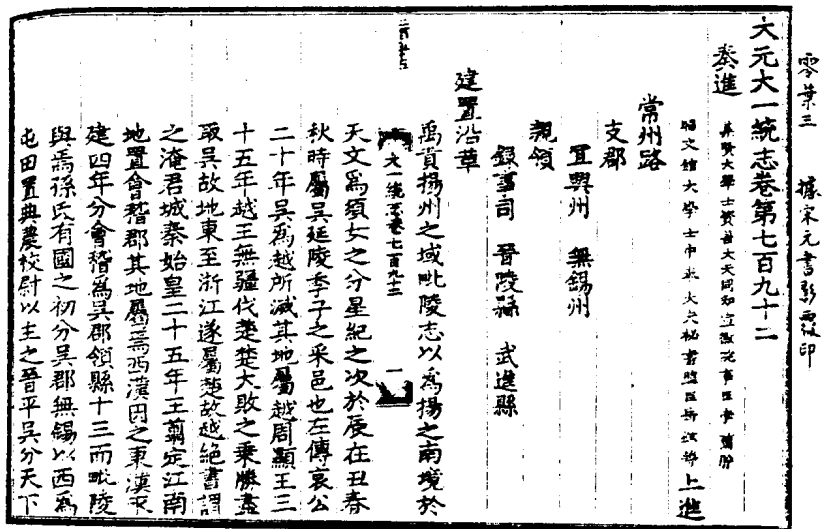 零葉三　據宋元書影覆印
大元大一統志卷第七百九十二
奏進　集賢大學士資善大夫同知宣徽院事臣孛蘭肹
昭文館大學士中奉大夫秘書監臣岳鉉等上進
常州路
支郡
宜興州　無錫州
親領
錄事司　晉陵縣　武進縣
建置沿革
禹貢揚州之域毗陵志以爲揚之南境於
大一統志卷七百九十二　一
天文爲須女之分星紀之次於辰在丑春
秋時屬吳延陵季子之采邑也左傳哀公
二十年吳爲越所滅其地屬越周顯王三
十五年越王無疆伐楚楚大敗之乘勝盡
取吳故地東至浙江遂屬楚故越絕書謂
之淹君城秦始皇二十五年王翦定江南
地置會稽郡其地屬焉西漢因之東漢永
建四年分會稽爲吳郡領縣十三而毗陵
與焉孫氏有國之初分吳郡無錫以西爲
屯田置典農校尉以主之晉平吳分天下